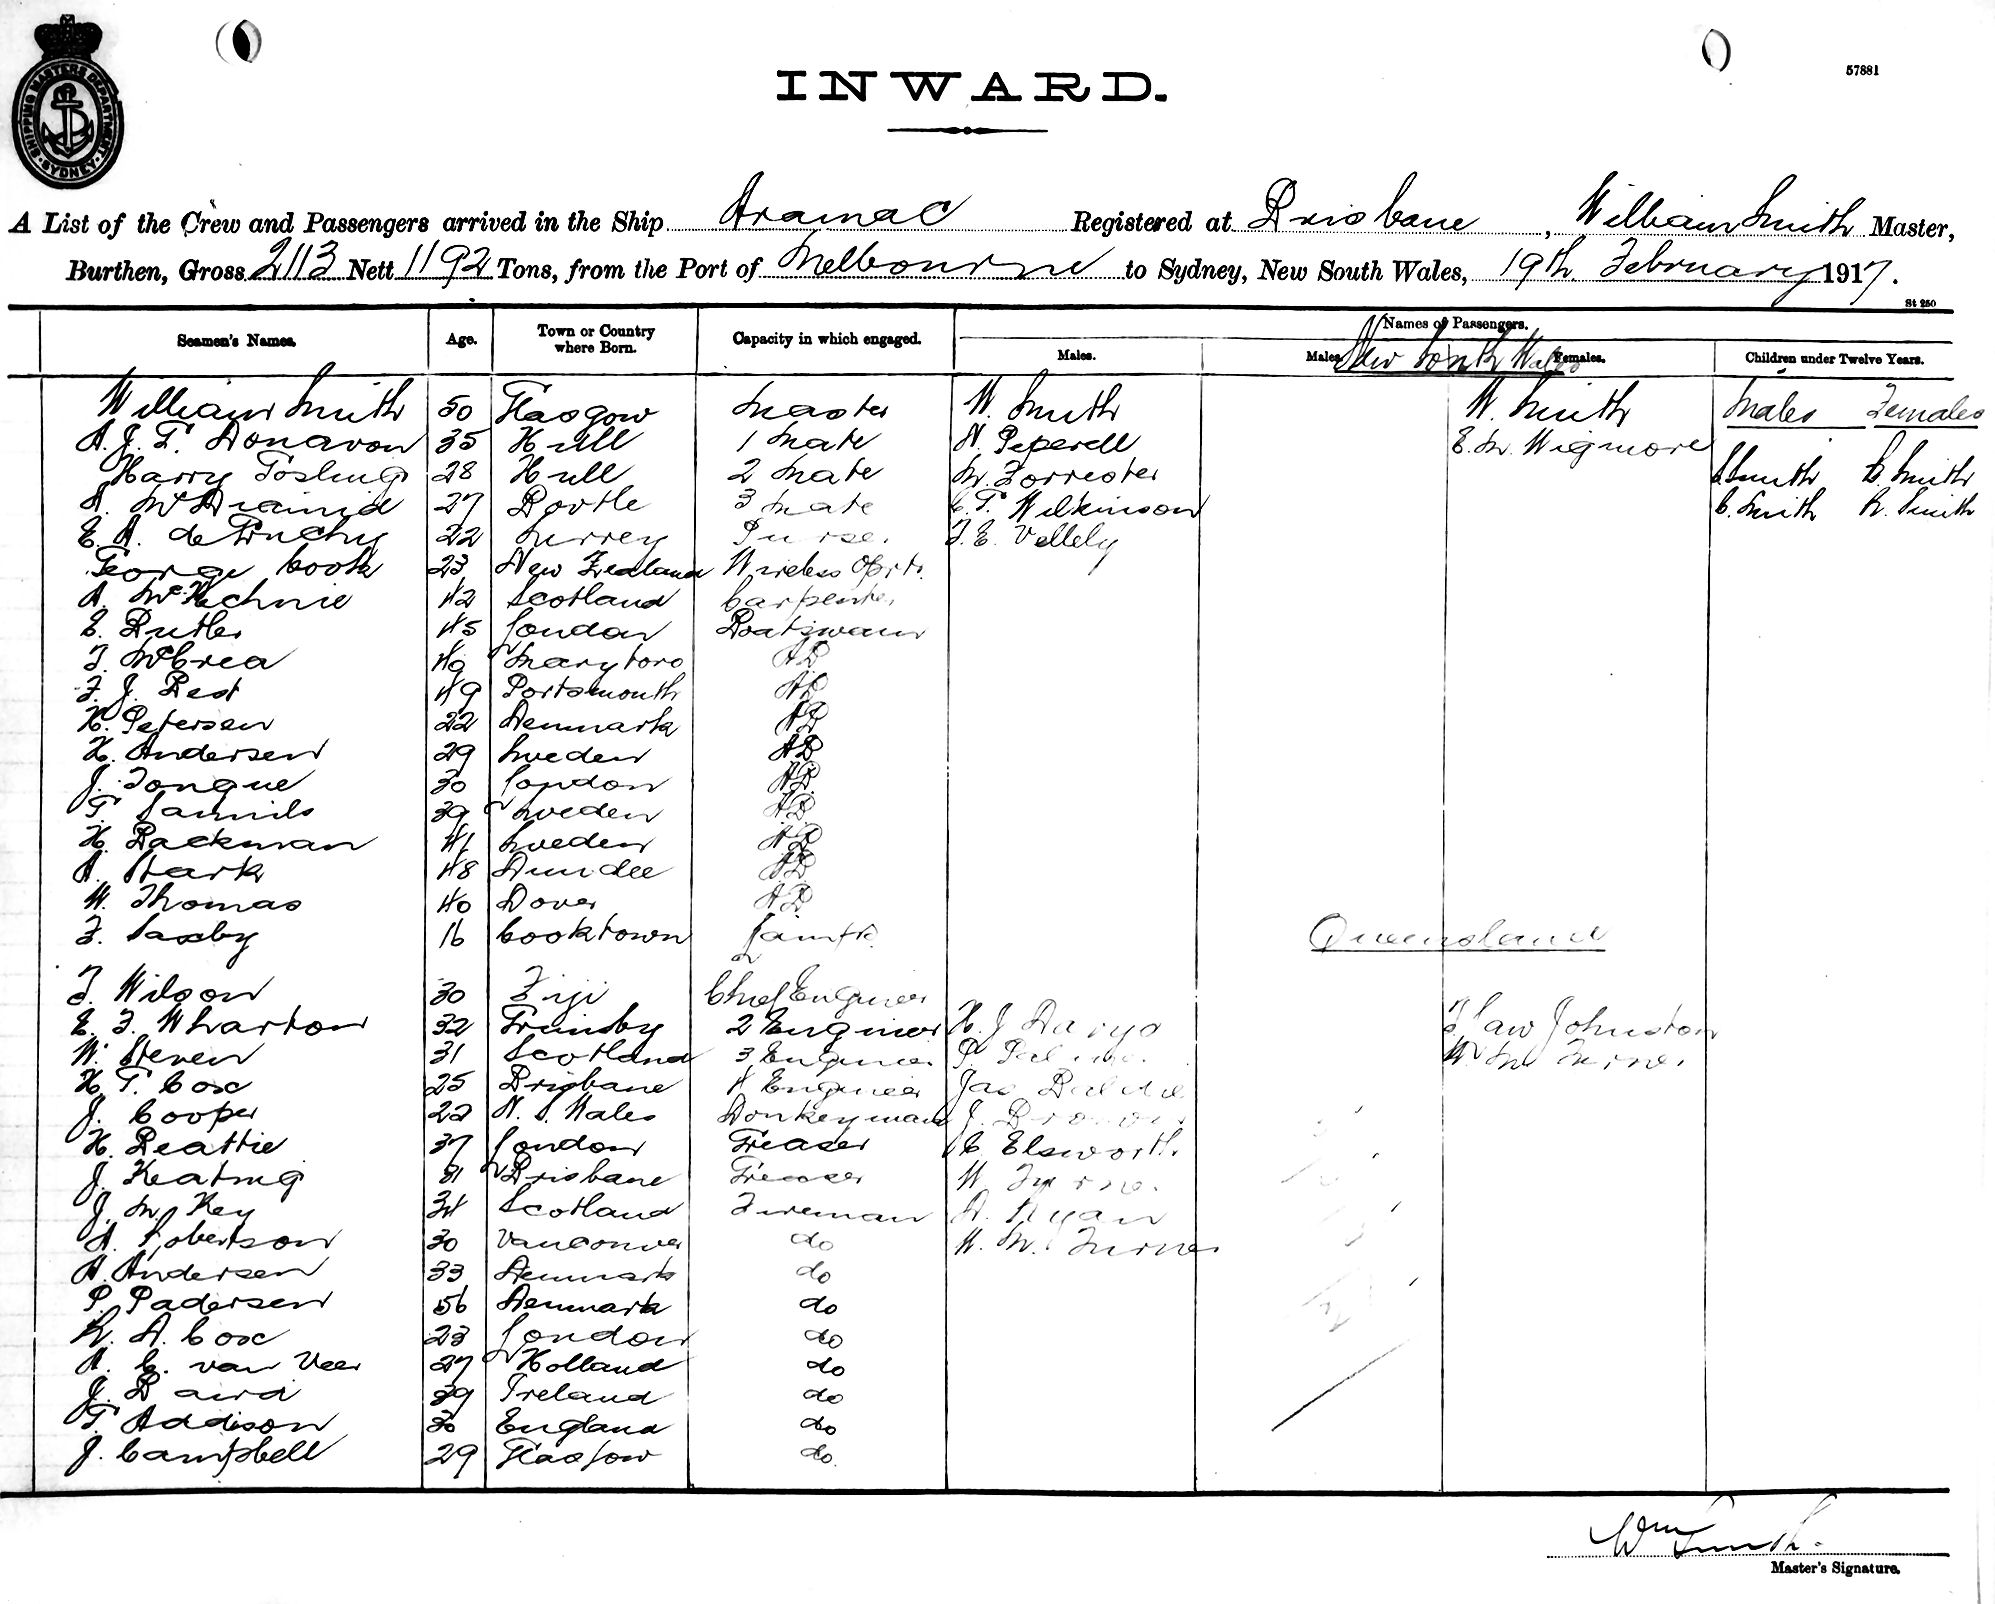 SHIPPING MASTERS DEPARTMENT · SYDNEY ·
57881
INWARD.
A List of the Crew and Passengers arrived in the Ship Aramac Registered at Brisbane, William Smith Master,
Burthen, Gross 2113 Nett 1192 Tons, from the Port of Melbourne to Sydney, New South Wales, 19th February 1917.
St 250
Seamen's Names. Age. Town or Country where Born. Capacity in which engaged. Names of Passengers.
Males. Males. New South Wales Females. Children under Twelve Years.
William Smith 50 Glasgow Master W. Smith W. Smith Males Females
A. J. G. Donavon 35 Hull 1 Mate N. Peperell E. M. Wigmore
Harry Gosling 28 Hull 2 Mate M. Forrester J Smith C. Smith
A. McDiamid 27 Bootle 3 Mate C. G. Wilkinson C. Smith R. Smith
E. A. de Fruchy 22 Surrey Purser F. E. Vellely
George Cook 23 New Zealand Wireless Oprtr.
A. McKechnie 42 Scotland Carpenter
E. Butler 45 London Boatswain
F. McCrea 40 Maryboro AB
F. J. Best 49 Portsmouth AB
H. Petersen 22 Denmark AB
H. Andersen 29 Sweden AB
J. Tongue 30 London AB
G. Samils 39 Sweden AB
H. Backman 41 Sweden AB
A. Stark 48 Dundee AB
W. Thomas 40 Dover AB
F. Saxby 16 Cooktown
Queensland
F. Wilson 30 Fiji Chief Engineer
E. F. Wharton 32 Grimsby 2 Engineer H. J Law Johnston
W. Steven 31 Scotland 3 Engineer P. W M Turner
H. G. Cox 25 Brisbane 4 Engineer Jas
J. Cooper 22 N. S. Wales Donkeyman J. Brown
H. Beattie 37 London Greaser C. Elsworth
J. Keating 31 Brisbane Greaser W. Turner
J. M. Key 34 Scotland Fireman A. Ryan
A. Robertson 30 Vancouver do W. M. Turner
A. Andersen 33 Denmark do
P. Padersen 56 Denmark do
R. A. Cox 23 London do
A. C. van Veer 27 Holland do
J. Baird 39 Ireland do
G. Addison 30 England do
J. Campbell 29 Glasgow do
Wm Smith.
Master's Signature.